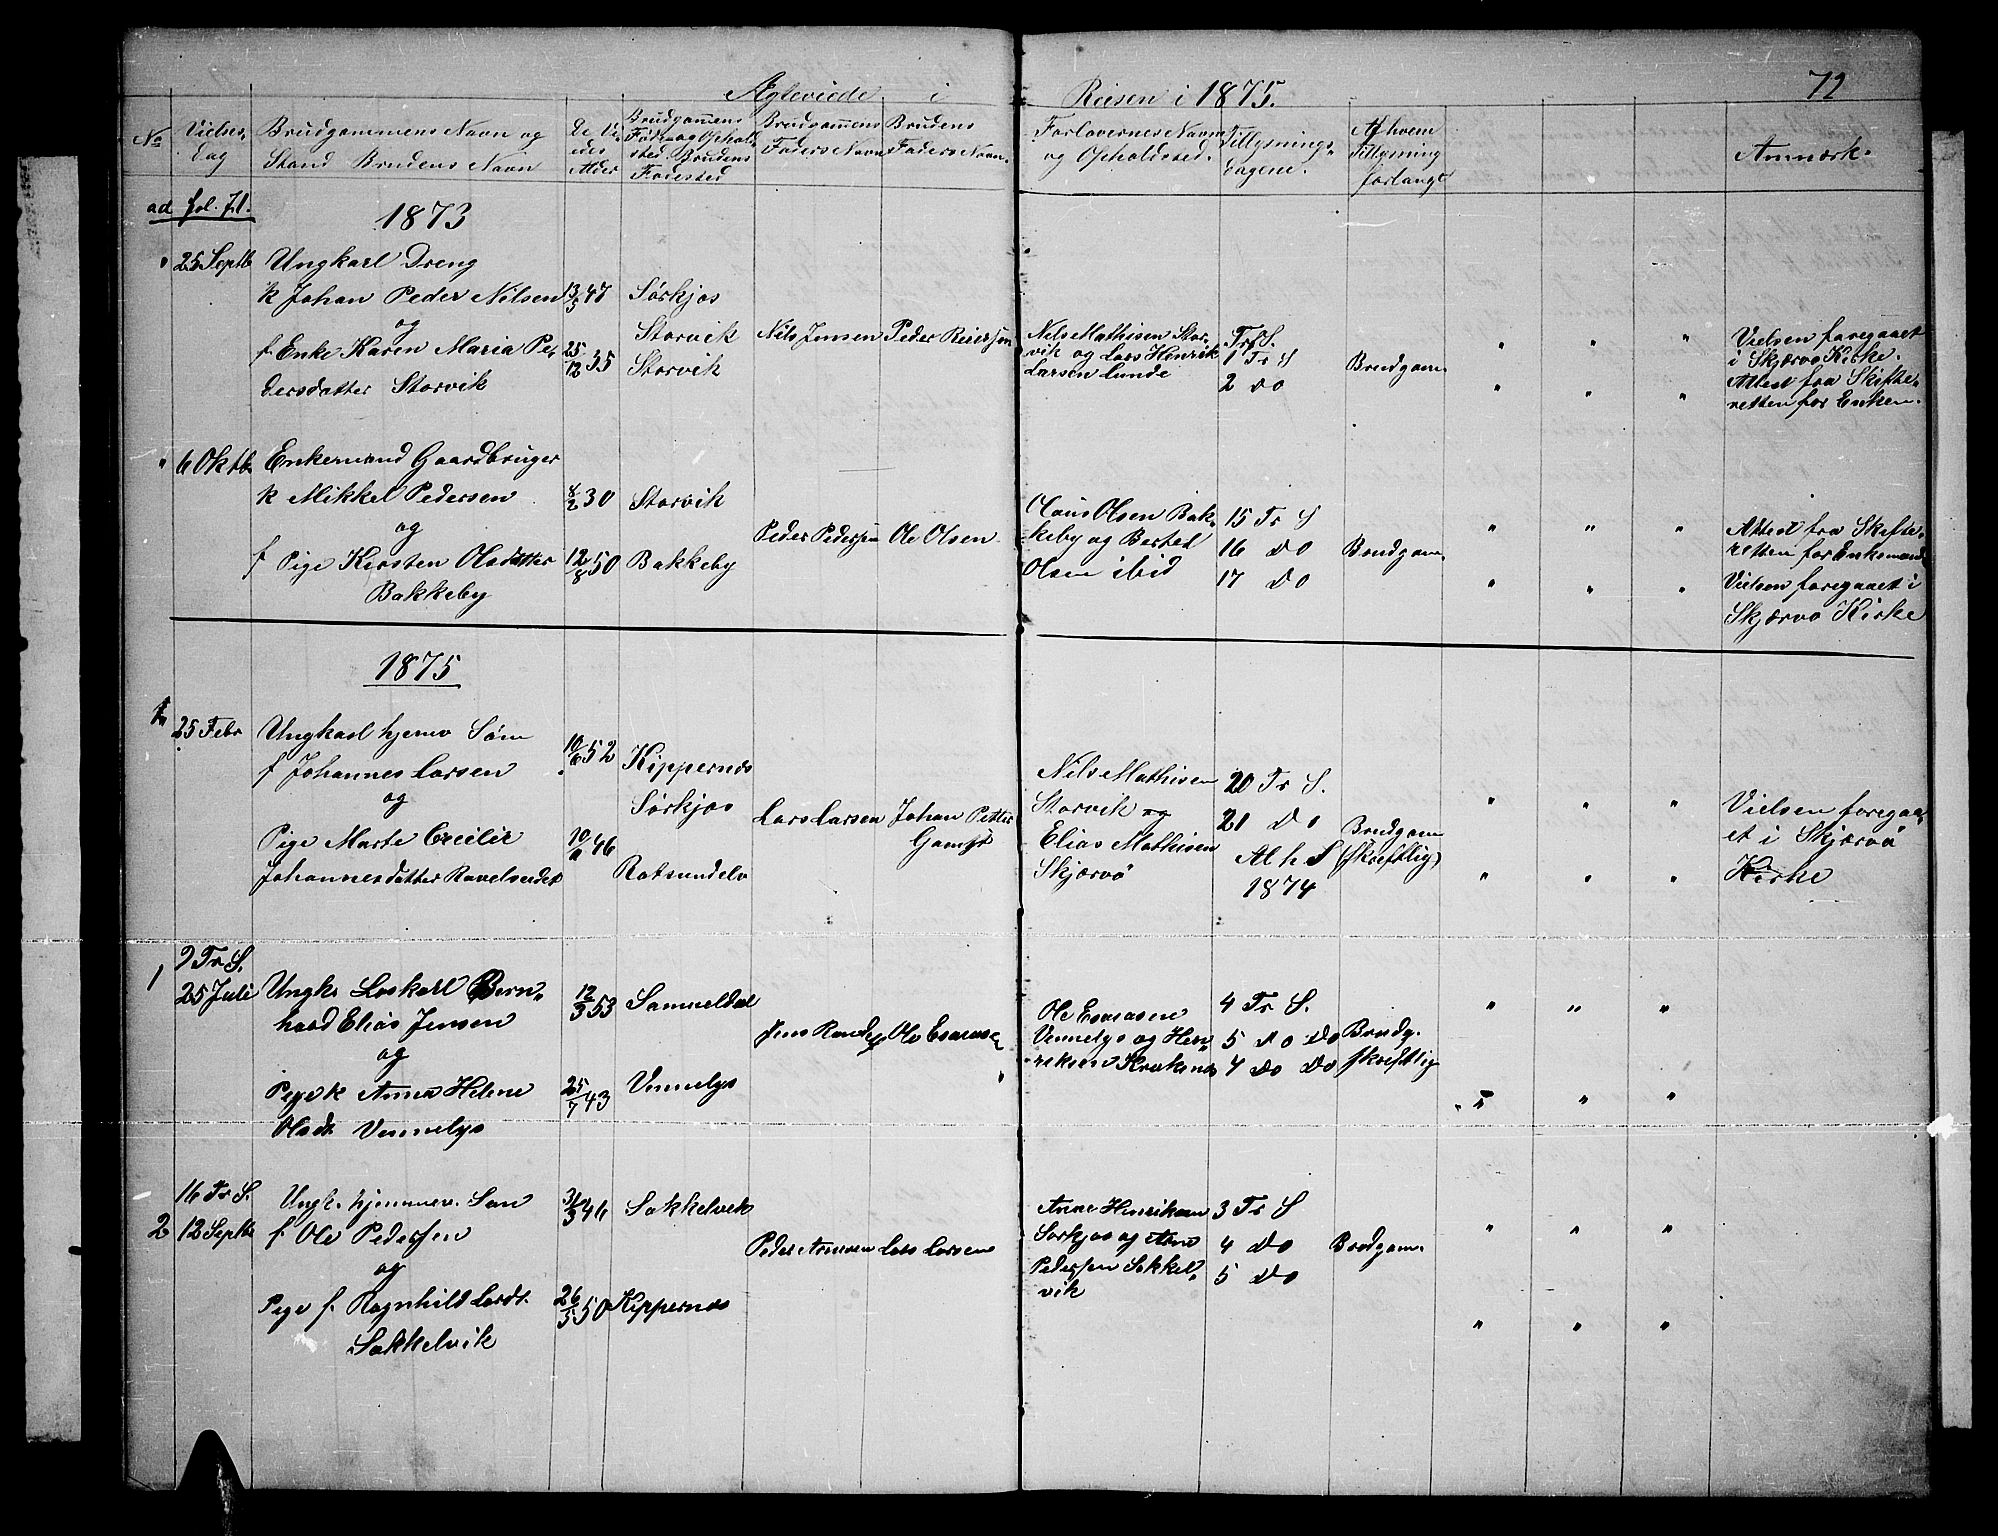 Ægteviede i Reisen i 1875.
72
No
Vielses Dag
Brudgommens Navn og
Stand Brudens Navn
De Vi
edes
Alder
Brudgomens
Føde og Ophol
sted Brudens
Fødested
Brudgomens
Faders Navn
Brudens
Faders Navn.
Forlovernes Navn
og Opholdsted.
Tillysnings-
dagene.
Af hvem
Tillysning
forlangt
Anmærk.
ad fol. 71.
1873
" 25 Septb
Ungkarl Dreng
k Johan Peder Nilsen
og
f Enke Karen Maria Pe-
dersdatter Storvik
13/5 47
25/12 35
Sørkjos
Storvik
Storvik
Nils Jensen
Peder Reiersen
Nils Mathisen Stor-
vik og Lars Henrik
Larsen Lunde
Tr S.
1 Tr S
2 do
Brudgom.
" " "
" " "
Vielsen foregaaet
i Skjærvø Kirke.
Attest fra Skifte-
retten for Enken.
" 6 Oktb
Enkemand Gaardbruger
k Mikkel Pedersen
og
f Pige Kirsten Olsdatter
Bakkeby
8/2 30
12/8 50
Storvik
Bakkeby
Peder Pedersen
Ole Olsen
Olaus Olsen Bak-
keby og Bested
Olsen ibid
15 Tr S
16 do
17 do
Brudgom.
" " "
" " "
Attest fra Skifte-
retten for Enkemand.
Vielsen foregaaet i
Skjærvø Kirke
1875
25 Febr
Ungkarl hjemv Søn
f Johannes Larsen
og
Pige Marte Cecilie
Johannesdatter Ravelseidet
10/6 52
46
Kippernæs
Sørkjos
Rotsundelv
Lars Larsen
Johan Petter
Nils Mathisen
Storvik og
Elias Mathisen
Skjærvø
20 Tr S.
21 do
Alh S
1874
Brudgom
(skriftlig)
" " "
" " "
Vielsen foregaa-
et i Skjærvø
Kirke
1
9 Tr S.
25 Juli
Ungk. Løskarl Bern-
hard Elias Jensen
og
Pige k Anna Helene
Olsdt Vinnelys
12/3 53
25/7 43
Samueldal
Vinnelys
Ole Esaiasen
Vinnelys og Hen-
riksen
4 Tr S.
5 do do
4 do do
Brudg.
skriftlig
" " "
" " "
2
16 Tr S.
12 Septb
Ungk. hjemmev. Søn
f Ole Pedersen
og
Pige f. Ragnhild Larsdt.
Sakkelvik
31/3 46
26/5 50
Sakkelvik
Kippernæs
Peder Arnesen
Lars Larsen
Arne Henriksen
Sørkjos og Arne
Pedersen Sakkel-
vik
3 Tr S
4 do
5 do
Brudgom.
" " "
" " "